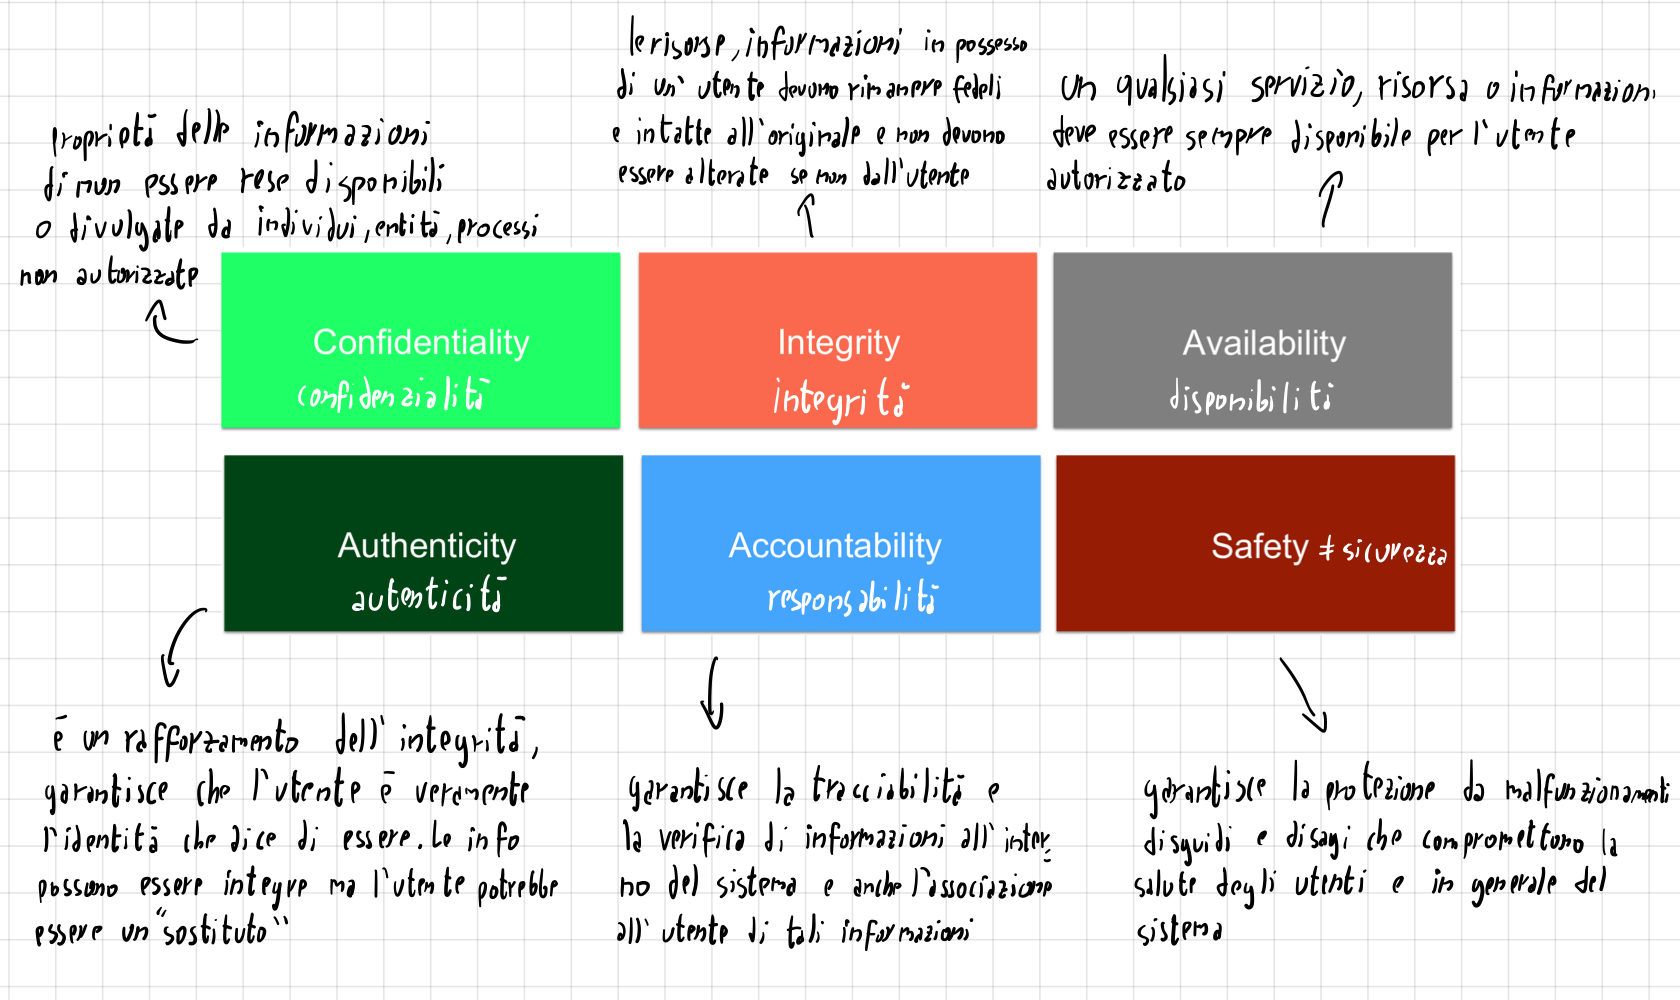 proprietà delle informazioni
di non essere rese disponibili
o divulgate da individui, entità, processi
non autorizzate
le risorse, informazioni in possesso
di un' utente devono rimanere fedeli
e intatte all'originale e non devono
essere alterate se non dall'utente
un qualsiasi servizio, risorsa o informazioni
deve essere sempre disponibile per l'utente
autorizzato
Confidentiality
confidenzialità
Integrity
integrità
Availability
disponibilità
Authenticity
autenticità
Accountability
responsabilità
Safety ≠ sicurezza
è un rafforzamento dell' integrità,
garantisce che l'utente è veramente
l'identità che dice di essere. Le info
possono essere integre ma l'utente potrebbe
essere un "sostituto"
garantisce la tracciabilità e
la verifica di informazioni all' inter
no del sistema e anche l'associazione
all' utente di tali informazioni
garantisce la protezione da malfunzionamenti
disguidi e disagi che compromettono la
salute degli utenti e in generale del
sistema